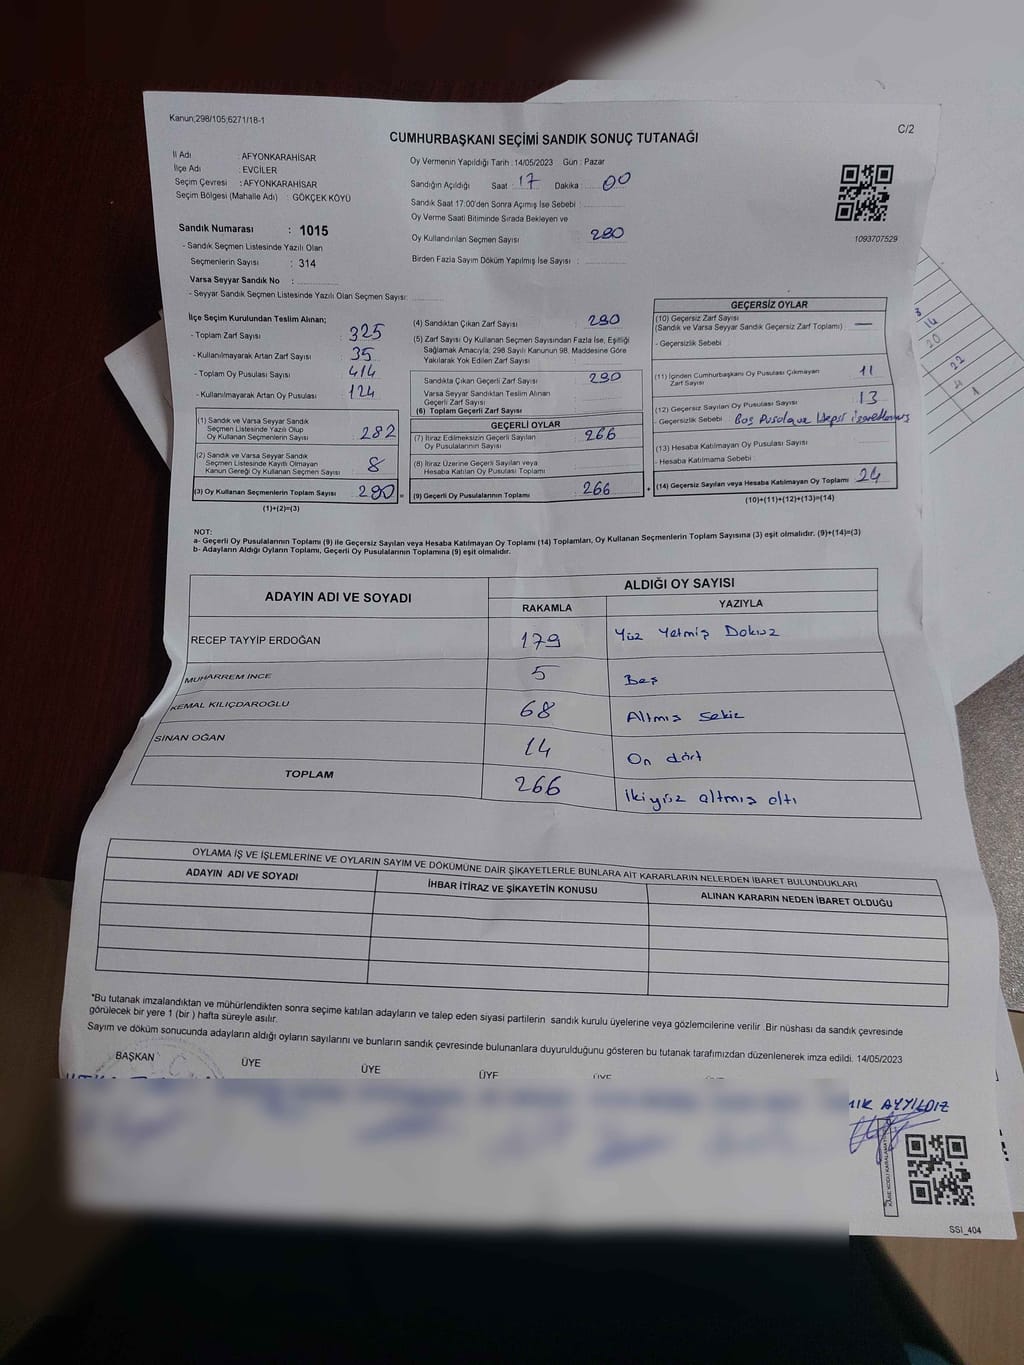 Kanun;298/105;6271/18-1
C/2
CUMHURBAŞKANI SEÇİMİ SANDIK SONUÇ TUTANAĞI
İl Adı : AFYONKARAHİSAR
İlçe Adı : EVCİLER
Seçim Çevresi : AFYONKARAHİSAR
Seçim Bölgesi (Mahalle Adı) : GÖKÇEK KÖYÜ
Sandık Numarası : 1015
- Sandık Seçmen Listesinde Yazılı Olan
Seçmenlerin Sayısı : 314
Varsa Seyyar Sandık No :
- Seyyar Sandık Seçmen Listesinde Yazılı Olan Seçmen Sayısı:
Oy Vermenin Yapıldığı Tarih : 14/05/2023 Gün : Pazar
Sandığın Açıldığı Saat : 17 Dakika : 00
Sandık Saat 17:00'den Sonra Açımış İse Sebebi :
Oy Verme Saati Bitiminde Sırada Bekleyen ve
Oy Kullandırılan Seçmen Sayısı : 290
Birden Fazla Sayım Döküm Yapılmış İse Sayısı :
1093707529
İlçe Seçim Kurulundan Teslim Alınan;
- Toplam Zarf Sayısı : 325
- Kullanılmayarak Artan Zarf Sayısı : 35
- Toplam Oy Pusulası Sayısı : 414
- Kullanılmayarak Artan Oy Pusulası : 124
(1) Sandık ve Varsa Seyyar Sandık
Seçmen Listesinde Yazılı Olup
Oy Kullanan Seçmenlerin Sayısı : 282
(2) Sandık ve Varsa Seyyar Sandık
Seçmen Listesinde Kayıtlı Olmayan
Kanun Gereği Oy Kullanan Seçmen Sayısı : 8
(3) Oy Kullanan Seçmenlerin Toplam Sayısı : 290
(1)+(2)=(3)
(4) Sandıktan Çıkan Zarf Sayısı : 290
(5) Zarf Sayısı Oy Kullanan Seçmen Sayısından Fazla İse, Eşitliği
Sağlamak Amacıyla, 298 Sayılı Kanunun 98. Maddesine Göre
Yakılarak Yok Edilen Zarf Sayısı :
Sandıkta Çıkan Geçerli Zarf Sayısı : 290
Varsa Seyyar Sandıktan Teslim Alınan
Geçerli Zarf Sayısı
(6) Toplam Geçerli Zarf Sayısı
GEÇERLİ OYLAR
(7) İtiraz Edilmeksizin Geçerli Sayılan
Oy Pusulalarının Sayısı : 266
(8) İtiraz Üzerine Geçerli Sayılan veya
Hesaba Katılan Oy Pusulası Toplamı
(9) Geçerli Oy Pusulalarının Toplamı : 266
GEÇERSİZ OYLAR
(10) Geçersiz Zarf Sayısı
(Sandık ve Varsa Seyyar Sandık Geçersiz Zarf Toplamı) : —
- Geçersizlik Sebebi :
(11) İçinden Cumhurbaşkanı Oy Pusulası Çıkmayan
Zarf Sayısı : 11
(12) Geçersiz Sayılan Oy Pusulası Sayısı : 13
- Geçersizlik Sebebi : Boş Pusula ve Hepsi
(13) Hesaba Katılmayan Oy Pusulası Sayısı :
- Hesaba Katılmama Sebebi :
(14) Geçersiz Sayılan veya Hesaba Katılmayan Oy Toplamı : 24
(10)+(11)+(12)+(13)=(14)
NOT:
a- Geçerli Oy Pusulalarının Toplamı (9) ile Geçersiz Sayılan veya Hesaba Katılmayan Oy Toplamı (14) Toplamları, Oy Kullanan Seçmenlerin Toplam Sayısına (3) eşit olmalıdır. (9)+(14)=(3)
b- Adayların Aldığı Oyların Toplamı, Geçerli Oy Pusulalarının Toplamına (9) eşit olmalıdır.
ADAYIN ADI VE SOYADI
ALDIĞI OY SAYISI
RAKAMLA YAZIYLA
RECEP TAYYİP ERDOĞAN 179 Yüz Yetmiş Dokuz
MUHARREM İNCE 5 Beş
KEMAL KILIÇDAROĞLU 68 Altmış sekiz
SİNAN OĞAN 14 On dört
TOPLAM 266 ikiyüz altmış altı
OYLAMA İŞ VE İŞLEMLERİNE VE OYLARIN SAYIM VE DÖKÜMÜNE DAİR ŞİKAYETLERLE BUNLARA AİT KARARLARIN NELERDEN İBARET BULUNDUKLARI
ADAYIN ADI VE SOYADI İHBAR İTİRAZ VE ŞİKAYETİN KONUSU ALINAN KARARIN NEDEN İBARET OLDUĞU
*Bu tutanak imzalandıktan ve mühürlendikten sonra seçime katılan adayların ve talep eden siyasi partilerin sandık kurulu üyelerine veya gözlemcilerine verilir .Bir nüshası da sandık çevresinde
görülecek bir yere 1 (bir ) hafta süreyle asılır.
Sayım ve döküm sonucunda adayların aldığı oyların sayılarını ve bunların sandık çevresinde bulunanlara duyurulduğunu gösteren bu tutanak tarafımızdan düzenlenerek imza edildi. 14/05/2023
BAŞKAN ÜYE ÜYE ÜYE ÜYE
AYYILDIZ
SSI_404
14
20
22